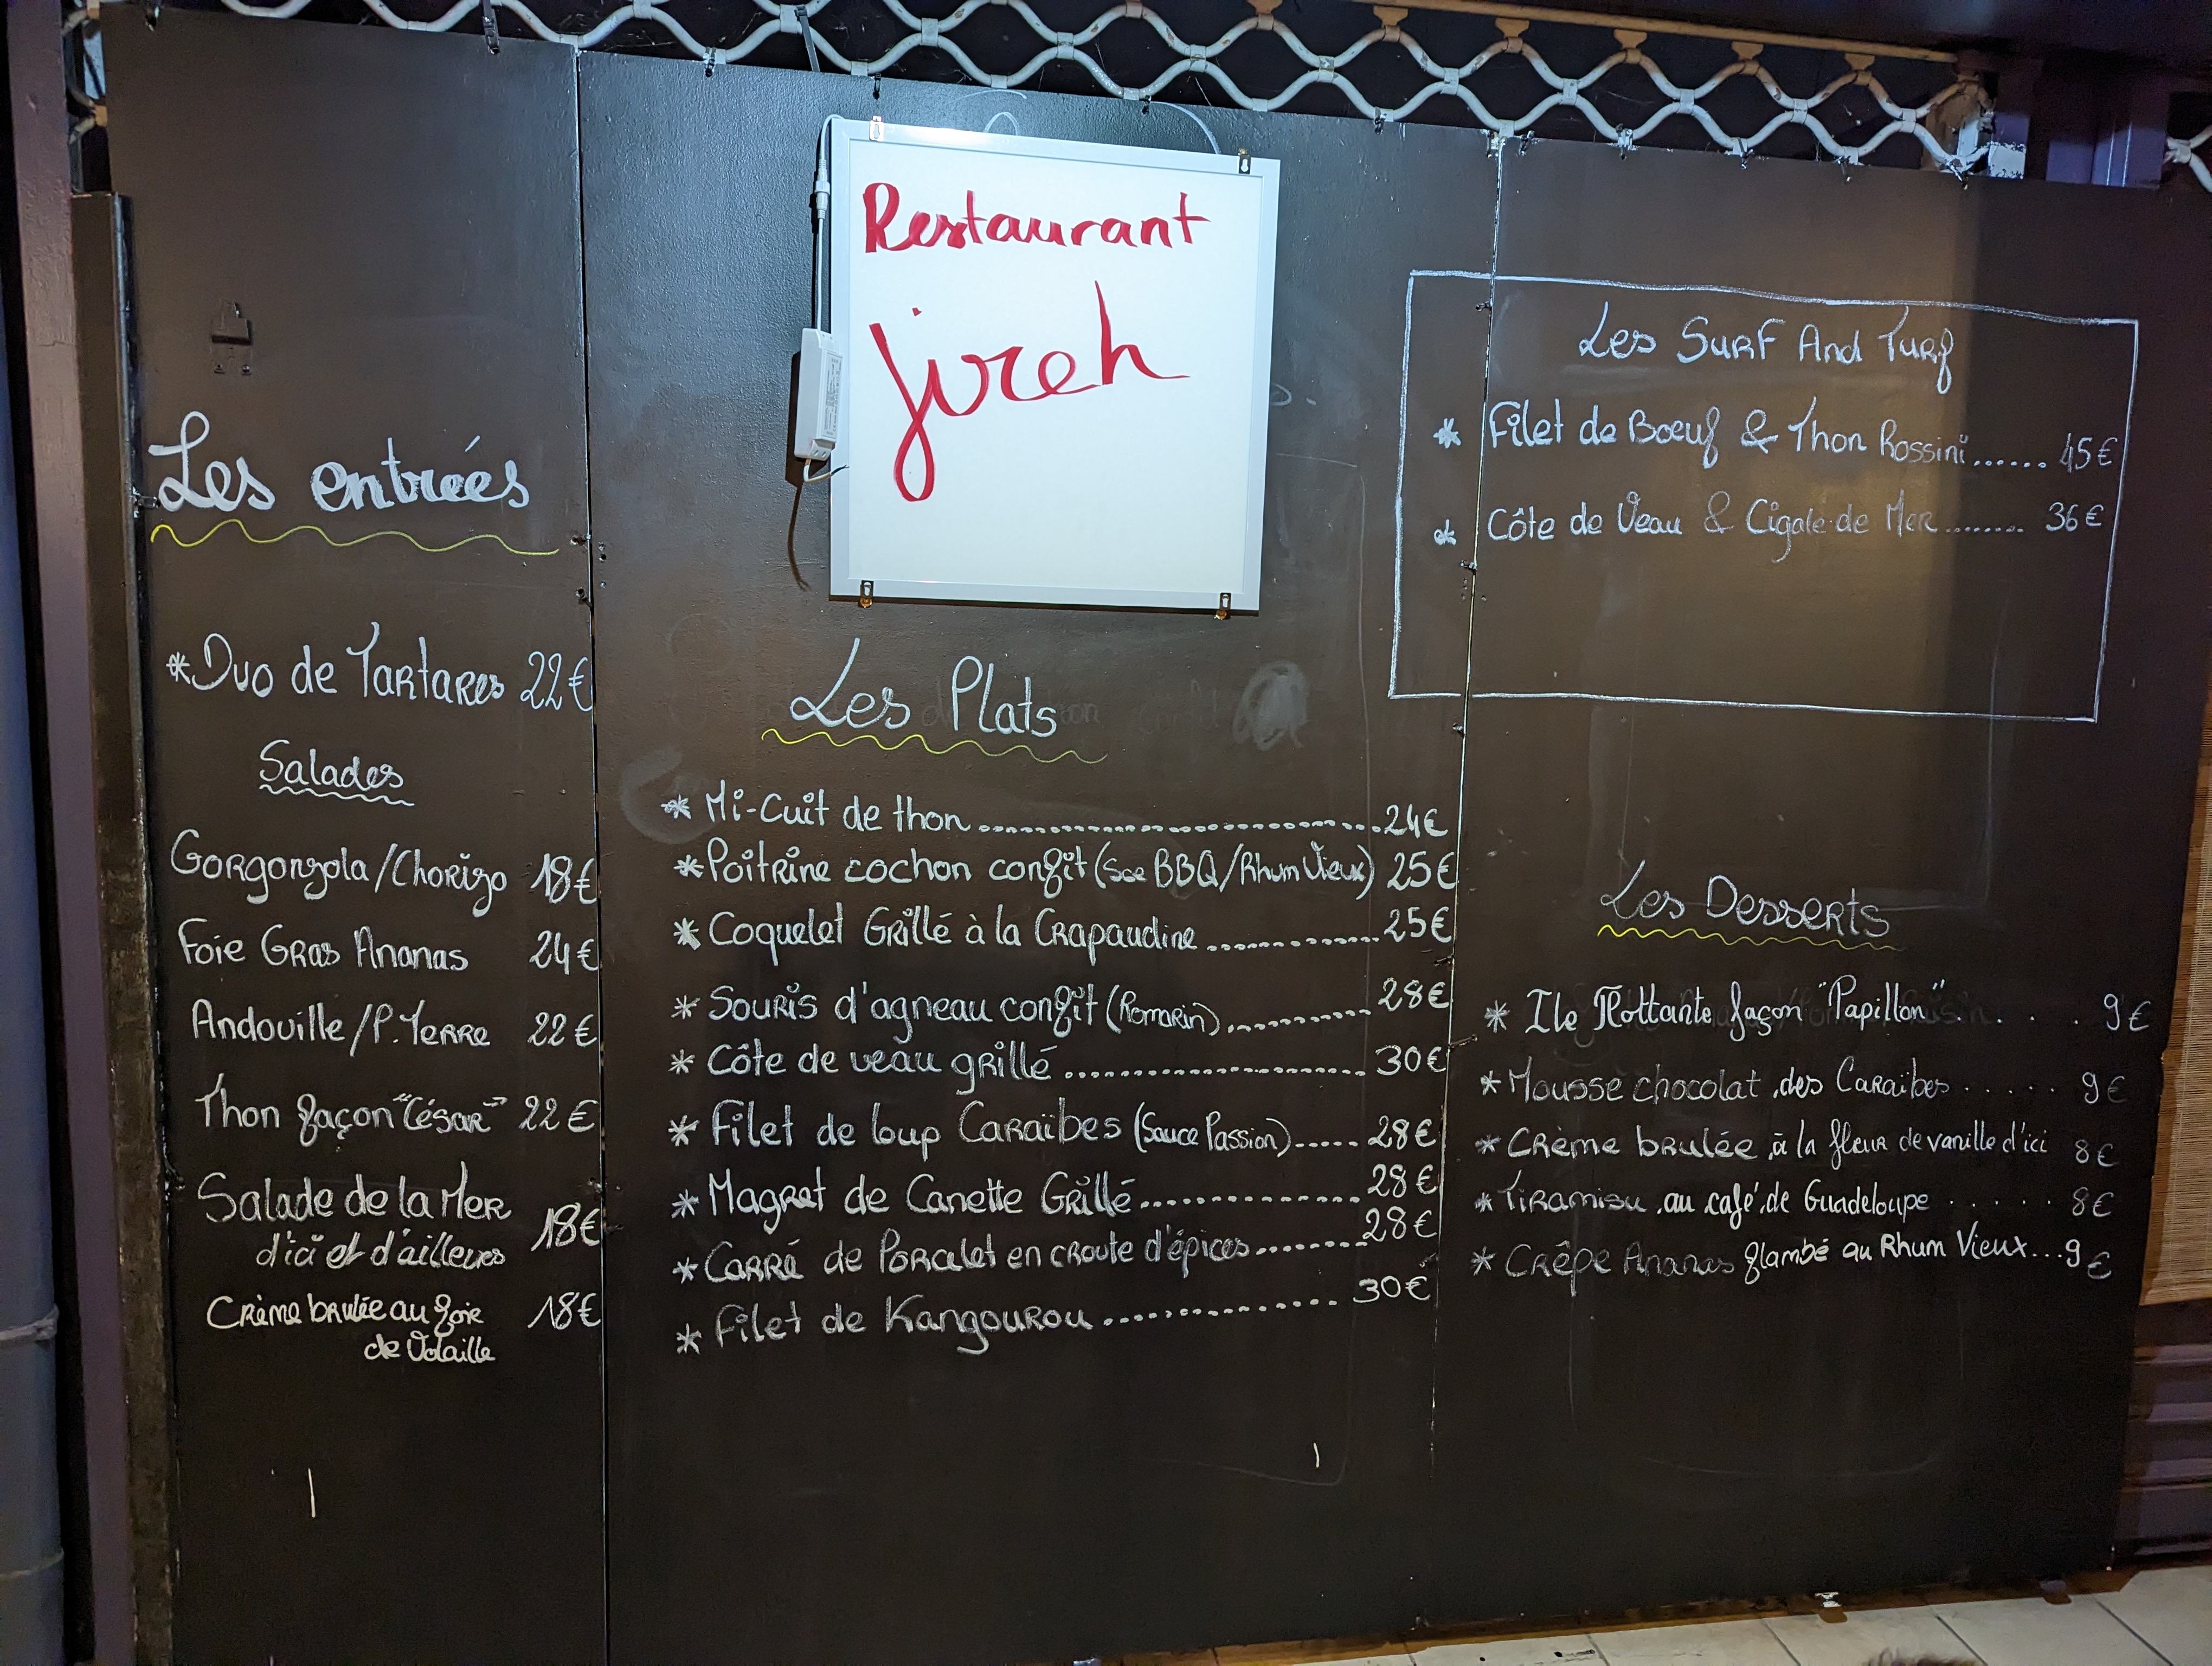 Restaurant
jireh
Les entrées
*Duo de Tartares 22€
Salades
Gorgonzola/Chorizo 18€
Foie Gras Ananas 24€
Andouille/P.Terre 22€
Thon façon "César" 22€
Salade de la Mer
d'ici et d'ailleurs 18€
Crème brulée au foie 18€
de Volaille
Les Plats
* Mi-Cuit de thon..............................24€
*Poitrine cochon confit (Sce BBQ/Rhum Vieux) 25€
* Coquelet Grillé à la Crapaudine..............25€
* Souris d'agneau confit (Romarin)...........28€
* Côte de veau grillé.......................30€
* Filet de loup Caraïbes (Sauce Passion).....28€
* Magret de Canette Grillé................28€
* Carré de Porcelet en croute d'épices.........28€
* Filet de Kangourou..................30€
Les Surf And Turf
* Filet de Boeuf & Thon Rossini......45€
* Côte de Veau & Cigale de Mer........36€
Les Desserts
* Ile Flottante façon "Papillon" . . . 9€
* Mousse chocolat des Caraïbes . . . . . 9€
* Crème brulée à la fleur de vanille d'ici 8€
* Tiramisu au café de Guadeloupe . . . . . 8€
* Crêpe Ananas flambé au Rhum Vieux...9€